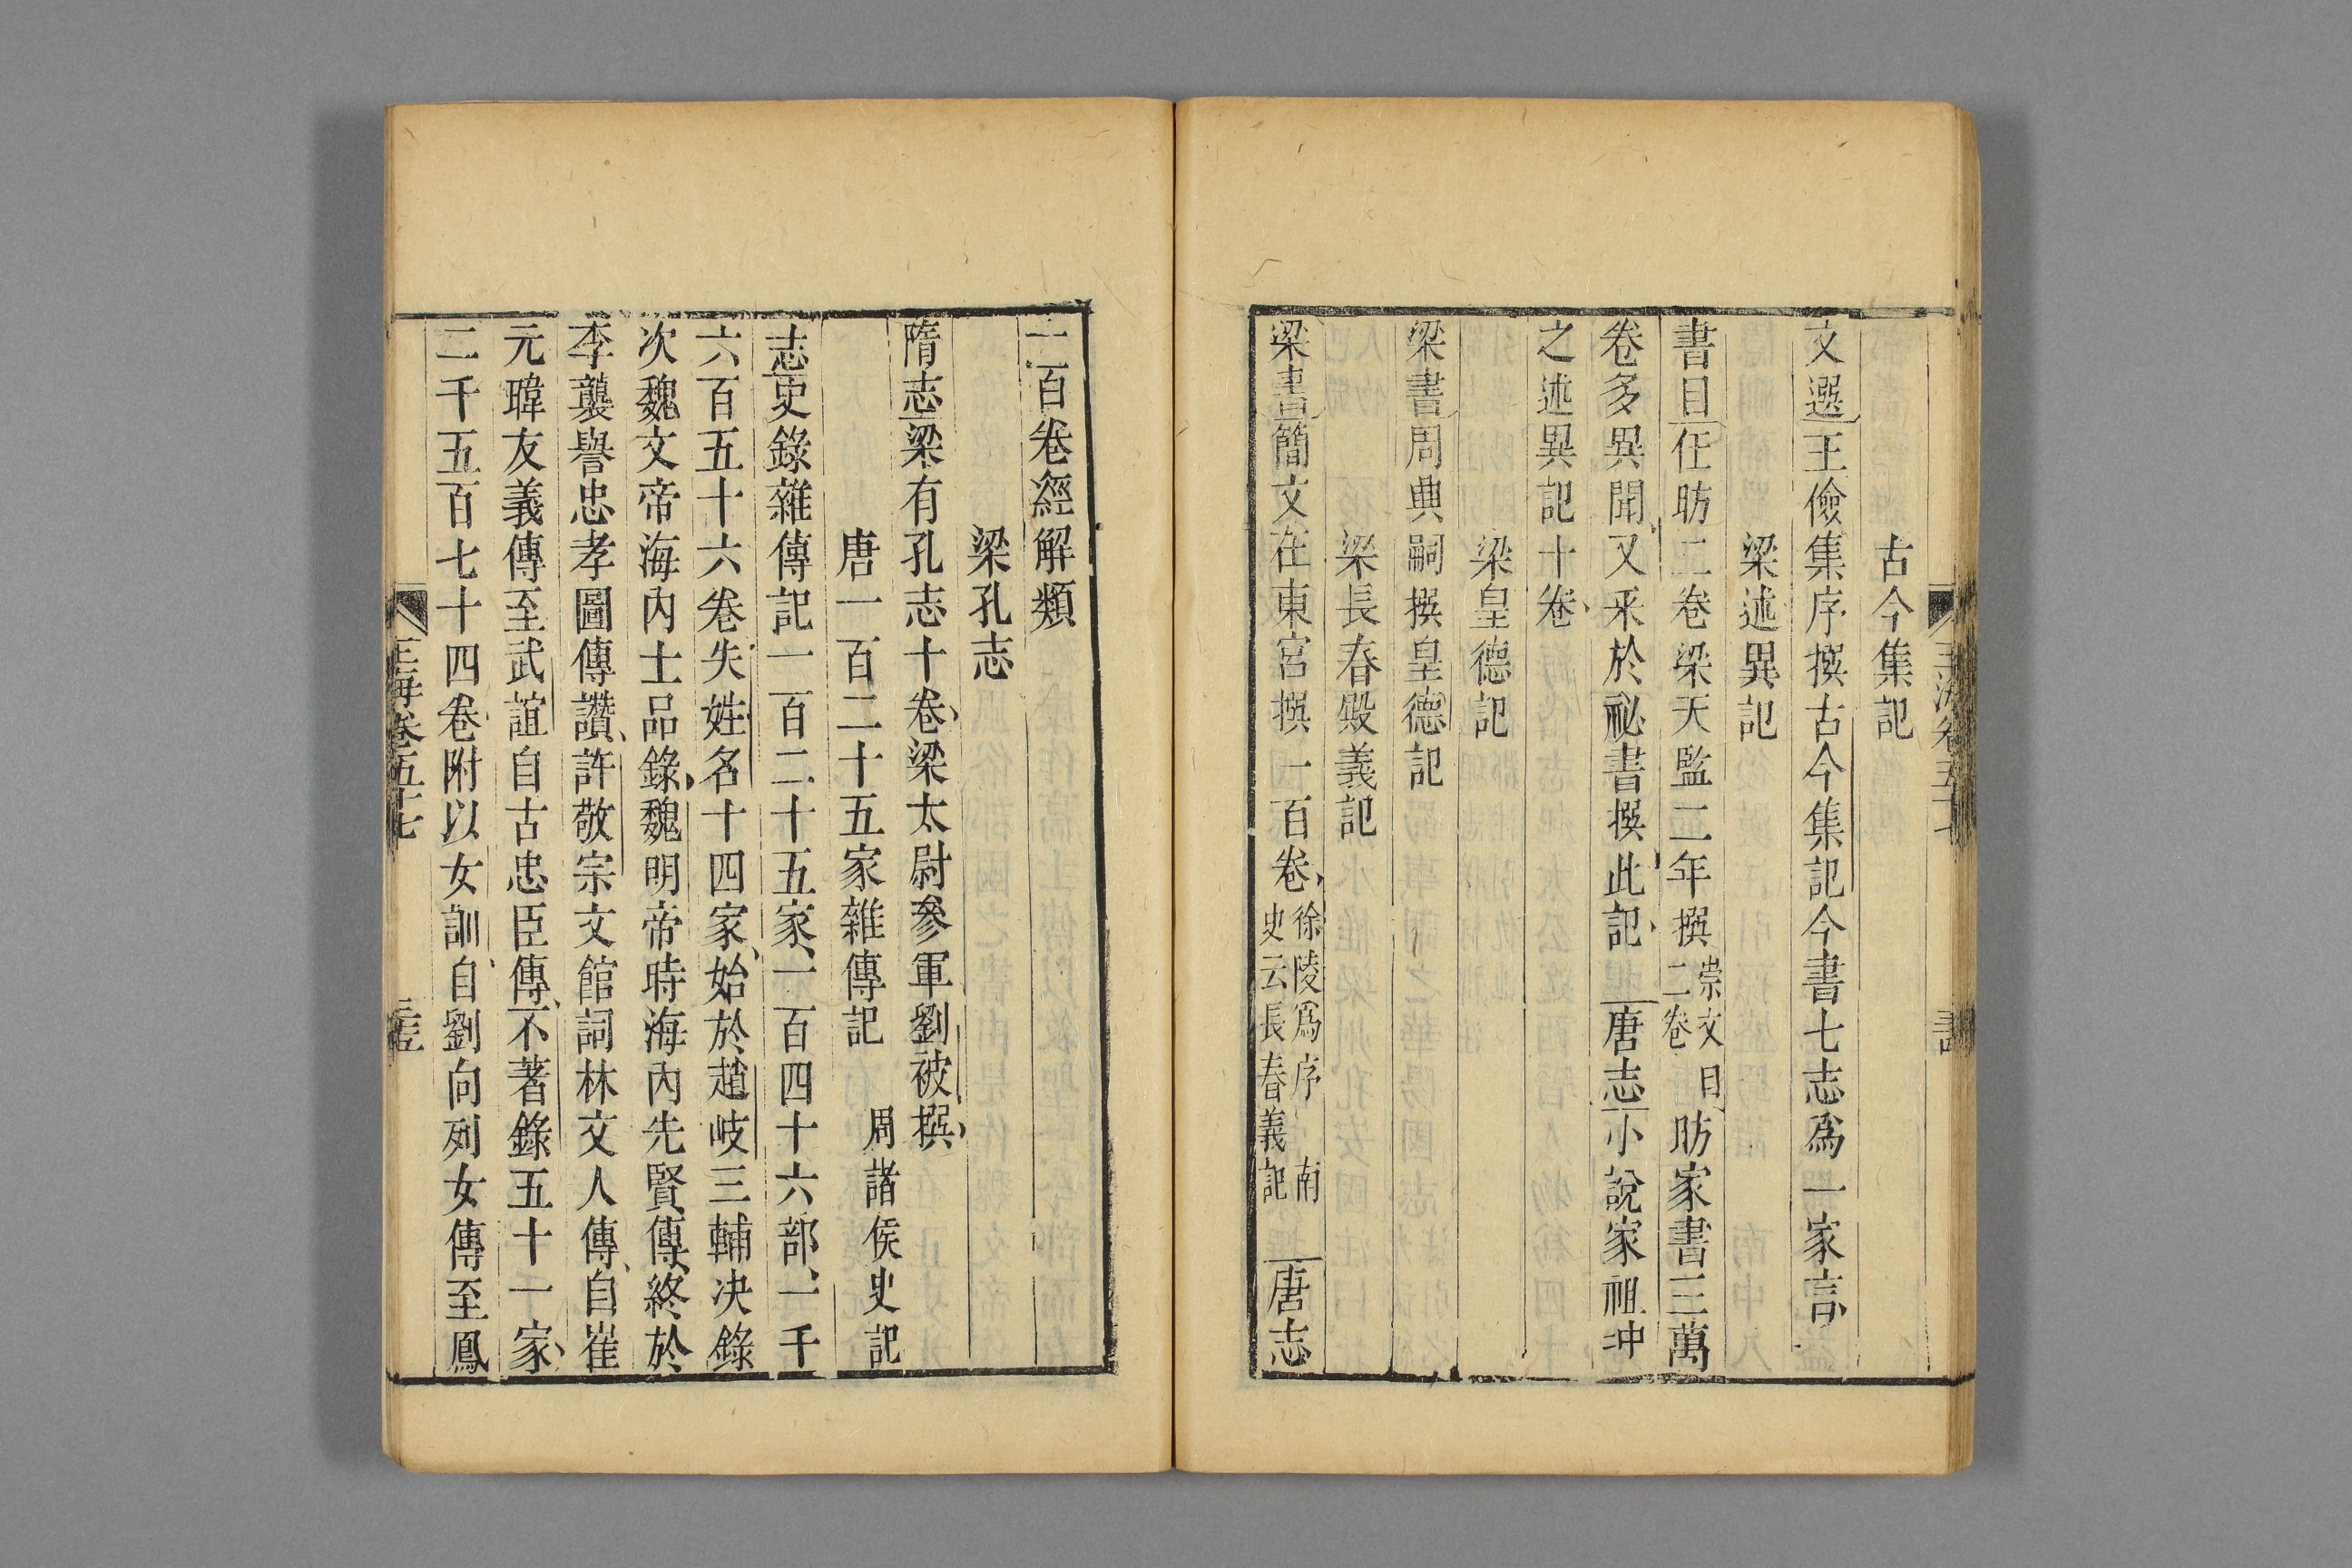 古今集記
文選王儉集序撰古今集記今書七志爲一家言
梁述異記
書目任昉二卷梁天監二年撰崇文目二卷昉家書三萬
卷多異聞又采於祕書撰此記唐志小說家祖冲
之述異記十卷
梁皇德記
梁書周興嗣撰皇德記
梁長春殿義記
梁書簡文在東宮撰一百卷徐陵爲序南史云長春義記唐志
一百卷經解類
梁孔志
隋志梁有孔志十卷梁太尉參軍劉被撰
唐一百二十五家雜傳記 周諸侯史記
志史錄雜傳記一百二十五家一百四十六部一千
六百五十六卷失姓名十四家始於趙岐三輔決錄
次魏文帝海內士品錄魏明帝時海內先賢傳終於
李襲譽忠孝圖傳讚許敬宗文館詞林文人傳自崔
元暐友義傳至武誼自古忠臣傳不著錄五十一家
二千五百七十四卷附以女訓自劉向列女傳至鳳
玉海卷五十七